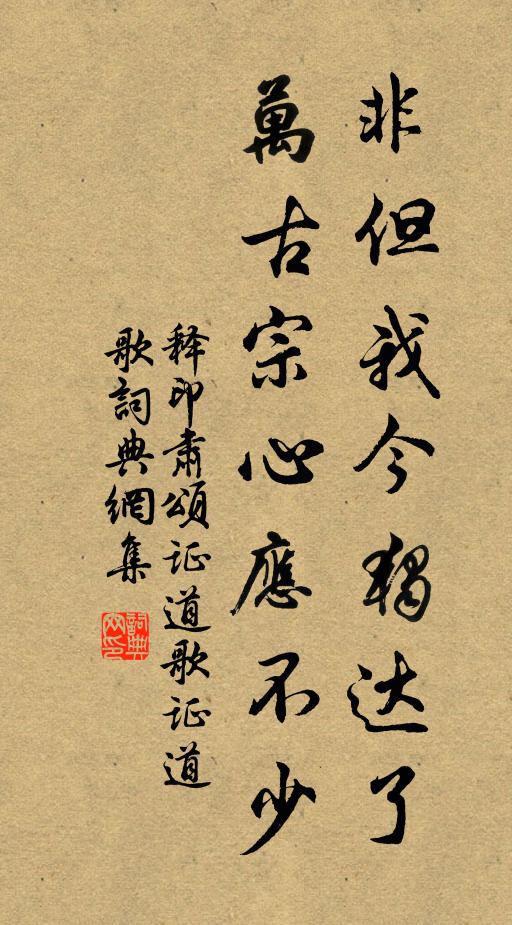 非但我今獨达了
萬古宗心應不少
释印肅頌证道歌证道
歌詞典網集
詞典
网印